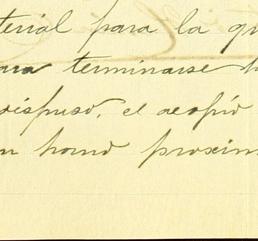 terial para la qu
ara terminarse
dispuso, el acopió
n proxim